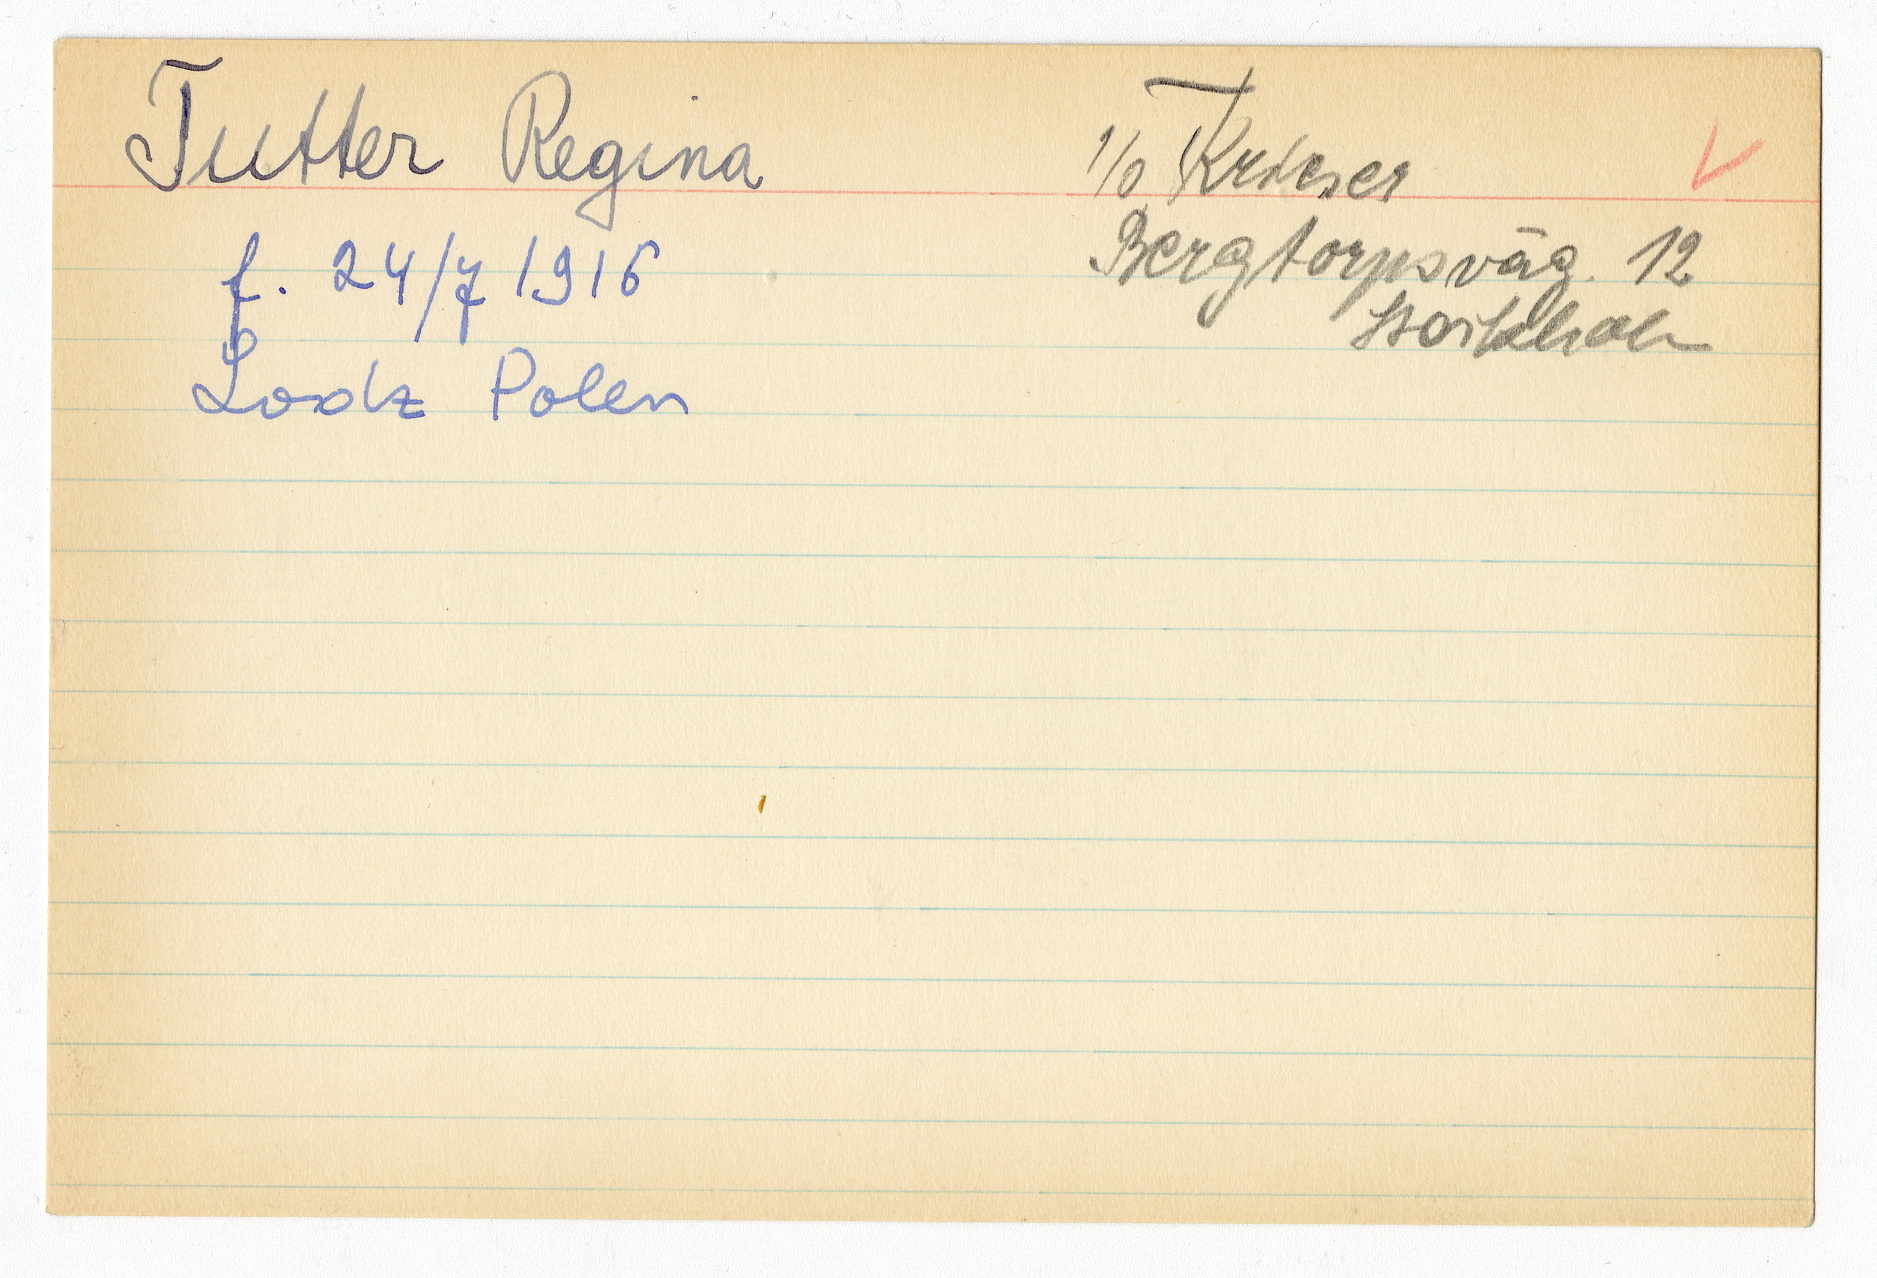 Tutter Regina
f. 24/7 1916
Lodz Polen
c/o
Bergtorpsväg. 12
Stockholm